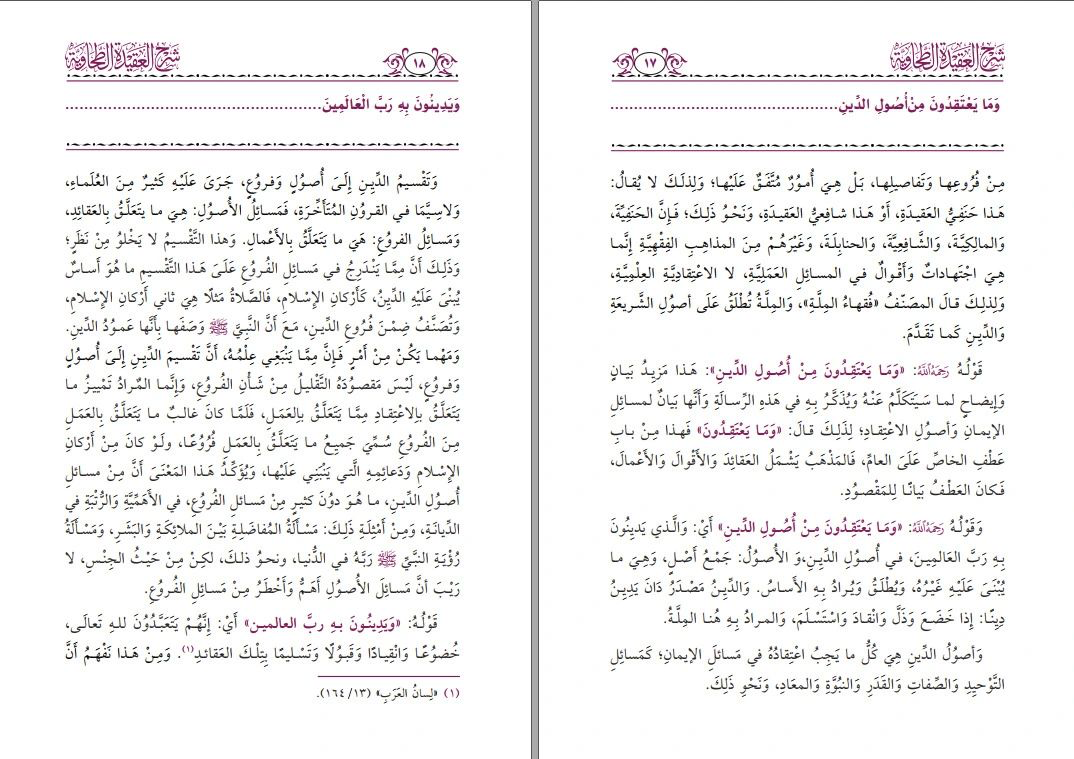 شرح العقيدة الطحاوية
١٧
وَمَا يَعْتَقِدُونَ مِنْ أُصُولِ الدِّينِ......................................
مِنْ فُرُوعِها وَتَفاصِيلِها، بَلْ هِيَ أُمُورٌ مُتَّفَقٌ عَلَيْها؛ وَلِذلَكَ لا يُقالُ:
هَذا حَنَفِيُّ العَقِيدَةِ، أَوْ هَذا شافِعِيُّ العَقِيدَةِ، وَنَحْوُ ذَلِكَ؛ فَإِنَّ الحَنَفِيَّةَ،
والمالِكِيَّةَ، وَالشَّافِعِيَّةَ، والحنابِلَةَ، وَغَيْرَهُمْ مِنَ المذاهِبِ الفِقْهِيَّةِ إِنَّما
هِيَ اجْتَهاداتٌ وَأَقْوالٌ في المسائِلِ العَمَلِيَّةِ، لا الاعْتِقادِيَّةِ العِلْمِيَّةِ،
وَلِذلِكَ قالَ المصَنّفُ «فُقهاءُ المِلَّةِ»، وَالمِلَّةُ تُطْلَقُ عَلَى أصولِ الشَّريعَةِ
وَالدِّينِ كَما تَقَدَّمَ.
قَوْلُهُ رَحِمَهُ اللَّهُ: «وَمَا يَعْتَقِدُونَ مِنْ أُصُولِ الدِّينِ»: هَذا مَزِيدُ بَيَانٍ
وَإِيضاحٍ لما سَيَتَكَلَّمُ عَنْهُ وَيُذَكِّرُ بِهِ في هَذِهِ الرِّسالَةِ وَأَنَّها بَيَانٌ لمسائِلِ
الإيمانِ وَأصولِ الاعْتِقادِ؛ لِذَلِكَ قالَ: «وَمَا يَعْتَقِدُونَ» فَهذا مِنْ بابِ
عَطْفِ الخاصِّ عَلَىَ العامِّ، فَالمَذْهَبُ يَشْمَلُ العَقائِدَ وَالأَقْوالَ وَالأَعْمالَ،
فَكانَ العَطْفُ بَيَانًا لِلمَقْصُودِ.
وَقَوْلُهُ رَحِمَهُ اللَّهُ: «وَمَا يَعْتَقِدُونَ مِنْ أُصُولِ الدِّينِ» أَيْ: وَالَّذي يَدِينُونَ
بِهِ رَبَّ العالَمِينَ، في أُصولِ الدِّينِ،وَ الأُصولُ: جَمْعُ أَصْلٍ، وَهِيَ ما
يُبْنَى عَلَيْهِ غَيْرُهُ، وَيُطْلَقُ وَيُرادُ بِهِ الأَساسُ. وَالدِّينُ مَصْدَرُ دَانَ يَدِينُ
دِينًا: إِذا خَضَعَ وَذَلَّ وَانْقادَ وَاسْتَسْلَمَ، وَالمرادُ بِهِ هُنا المِلَّةُ.
وَأصولُ الدِّينِ هِيَ كُلُّ ما يَجِبُ اعْتِقادُهُ في مَسائِلِ الإيمانِ؛ كَمَسائِلِ
التَّوْحِيدِ وَالصِّفاتِ وَالقَدَرِ وَالنبوَّةِ وَالمعَادِ، وَنَحْوِ ذَلِكَ.
شرح العقيدة الطحاوية
١٨
وَيَدِينُونَ بِهِ رَبَّ الْعَالَمِينَ...........................................
وَتَقْسِيمُ الدِّينِ إِلَىَ أُصولٍ وَفروعٍ، جَرَىَ عَلَيْهِ كَثيرٌ مِنَ العُلَماءِ،
وَلاسِيَّمَا في القرونِ المُتَأَخِّرَةِ، فَمَسائلُ الأُصولِ: هِيَ ما يتعَلَّقُ بِالعَقائِدِ،
وَمَسائِلُ الفروعِ: هَيَ ما يَتَعَلَّقُ بِالأَعْمالِ. وَهذا التَّقْسيمُ لا يَخْلُو مِنْ نَظَرٍ؛
وَذَلِكَ أَنَّ مِمَّا يَنْدَرِجُ في مَسائِلِ الفُروعِ عَلَىَ هَذا التَّقْسيمِ ما هُوَ أَساسٌ
يُبْنَى عَلَيْهِ الدِّينُ، كَأَرْكانِ الإِسْلامِ، فَالصَّلاةُ مَثلًا هِيَ ثاني أَرْكانِ الإِسْلامِ،
وَتُصَنَّفُ ضِمْنَ فُروعِ الدِّينِ، مَعَ أَنَّ النَّبِيَّ ﷺ وَصَفَها بِأَنَّها عَمودُ الدِّينِ.
وَمَهْما يَكُنْ مِنْ أَمْرٍ فَإِنَّ مِمَّا يَنْبَغِي عِلْمُهُ، أَنَّ تَقْسِيمَ الدِّينِ إِلَىَ أُصُولٍ
وَفروعٍ، لَيْسَ مَقصودُهُ التَّقْليلُ مِنْ شَأْنِ الفُروعِ، وَإِنَّما المُرَادُ تَمْييزُ ما
يَتَعَلَّقُ بِالاعْتِقادِ مِمَّا يَتَعَلَّقُ بِالعَمَلِ، فَلَمَّا كانَ غالبُ ما يَتَعَلَّقُ بِالعَمَلِ
مِنَ الفُروعِ سُمِّيَ جَميعُ ما يَتَعَلَّقُ بِالعَمَلِ فُرُوعًا، وَلَوْ كانَ مِنْ أَرْكانِ
الإِسْلامِ وَدَعائِمِهِ الَّتي يَنْبَنِي عَلَيْها، وَيُؤَكِّدُ هَذا المَعْنَىَ أَنَّ مِنْ مسائلِ
أُصولِ الدِّينِ، ما هُوَ دونَ كَثيرٍ مِنْ مَسائِلِ الفُروعِ، في الأَهَمِّيَّةِ وَالرُّتْبَةِ في
الدِّيانَةِ، وَمِنْ أَمْثِلَةِ ذَلِكَ: مَسْأَلَةُ المُفاضَلَةِ بَيْنَ الملائِكَةِ وَالبَشَرِ، وَمَسْأَلَةُ
رُؤْيَةِ النَّبِيِّ ﷺ رَبَّهُ في الدُّنيا، ونحوُ ذلكَ، لكِنْ مِنْ حَيْثُ الجِنْسِ، لا
رَيْبَ أنَّ مَسائِلَ الأُصولِ أَهَمُّ وَأَخْطَرُ مِنْ مَسائِلِ الفُروعِ.
قَوْلُهُ: «وَيَدِينُونَ بِهِ ربَّ العالمين» أَيْ: إِنَّهُمْ يَتَعَبَّدُونَ للهِ تَعالَى،
خُضوُعًا وَانْقِيادًا وَقَبُولًا وَتَسْليمًا بِتِلْكَ العَقائدِ(١). وَمِنْ هَذا نَفْهَمُ أَنَّ
(١) «لِسانُ العَرَبِ» (١٣/ ١٦٤).